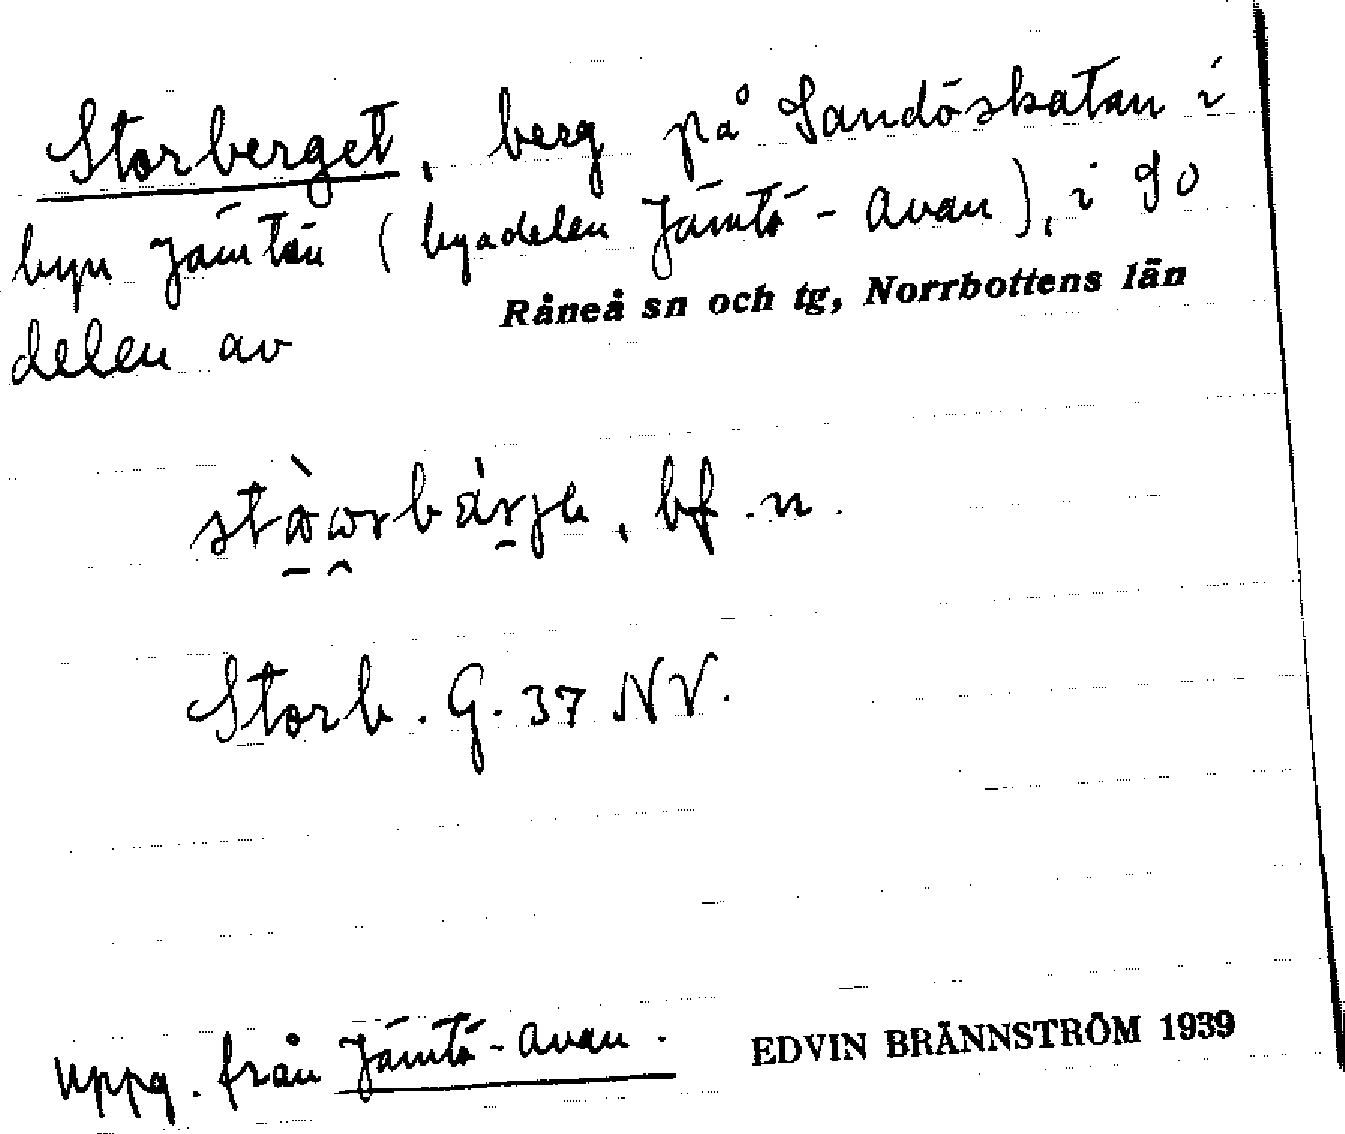 Storberget, berg på Sandöskatan i
byn Jämtön (byadelen Jämtö-Avan), i SO
Råneå sn och tg, Norrbottens län
delen av
bf. n.
Storb. G. 37 NV.
Uppg. från Jämtö-Avan.
EDVIN BRÄNNSTRÖM 1939